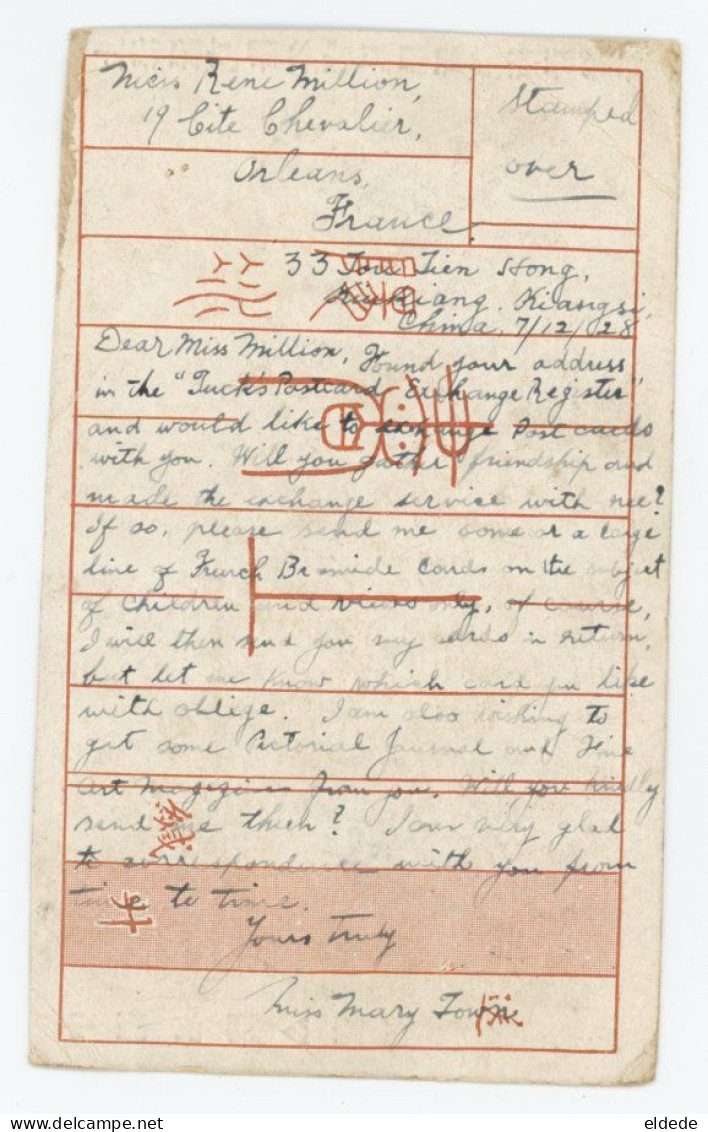 Miss Rene Million,
19 Cite Chevalier,
Orleans,
France.
Stamped
over
33 Tou Tien Hong,
Kiukiang. Kiangsi,
China. 7/12/28
Dear Miss Million, Found your address
in the "Tuck's Postcard Exchange Register"
and would like to exchange Post cards
with you. Will you gather friendship and
made the exchange service with me?
If so, please send me some or a large
line of French Bromide Cards on the subject
of Children and views only, of course,
I will then send you my cards in return,
but let me know which card you like
with oblige. I am also wishing to
get some Pictorial Journal and Fine
Art Magazines from you. Will you kindly
send me them? I am very glad
to correspondence with you from
time to time.
Yours truly
Miss Mary Town
eldede